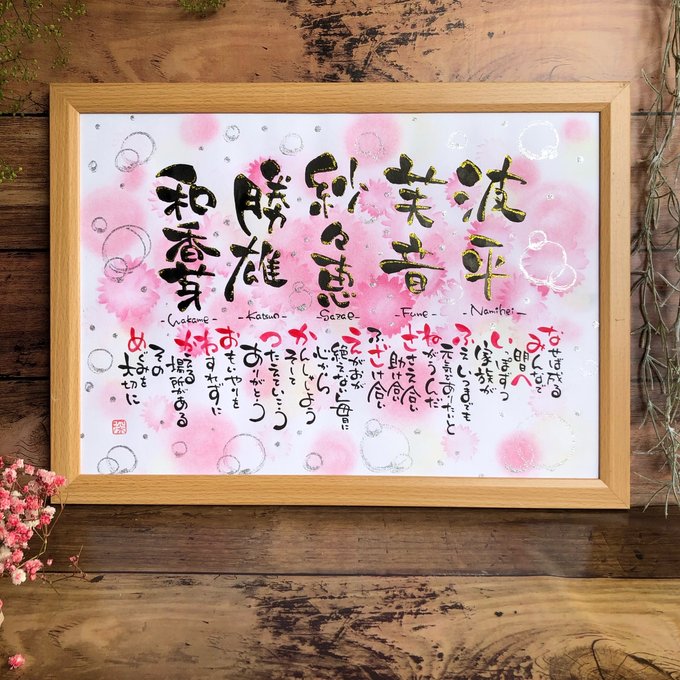 波平
-Namihei-
芙音
-Fune-
紗々恵
-Sazae-
勝雄
-Katsuo-
和香芽
-Wakame-
なせば成る
みんなで
前へ
いっぽずつ
家族が
ふえ いつまでも
元気でありたいと
ねがうんだ
ささえ合い
助け合い
ふざけ合い
えがおが
絶えない毎日に
心から
かんしゃしよう
そして
つたえていこう
ありがとう
おもいやりを
わすれずに
かえる
場所がある
その
めぐみを
大切に